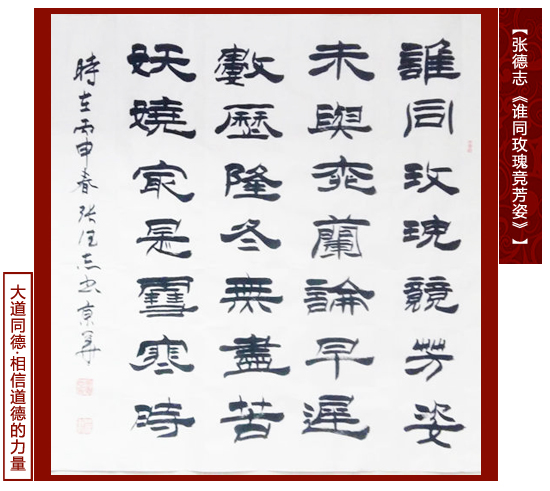 【张德志《谁同玫瑰竞芳姿》】
誰同玫瑰競芳姿
未與奕蘭論早遲
數歷隆冬無盡苦
妖嬈冣是雪寒時
時在丙申春张德志书京華
大道同德·相信道德的力量